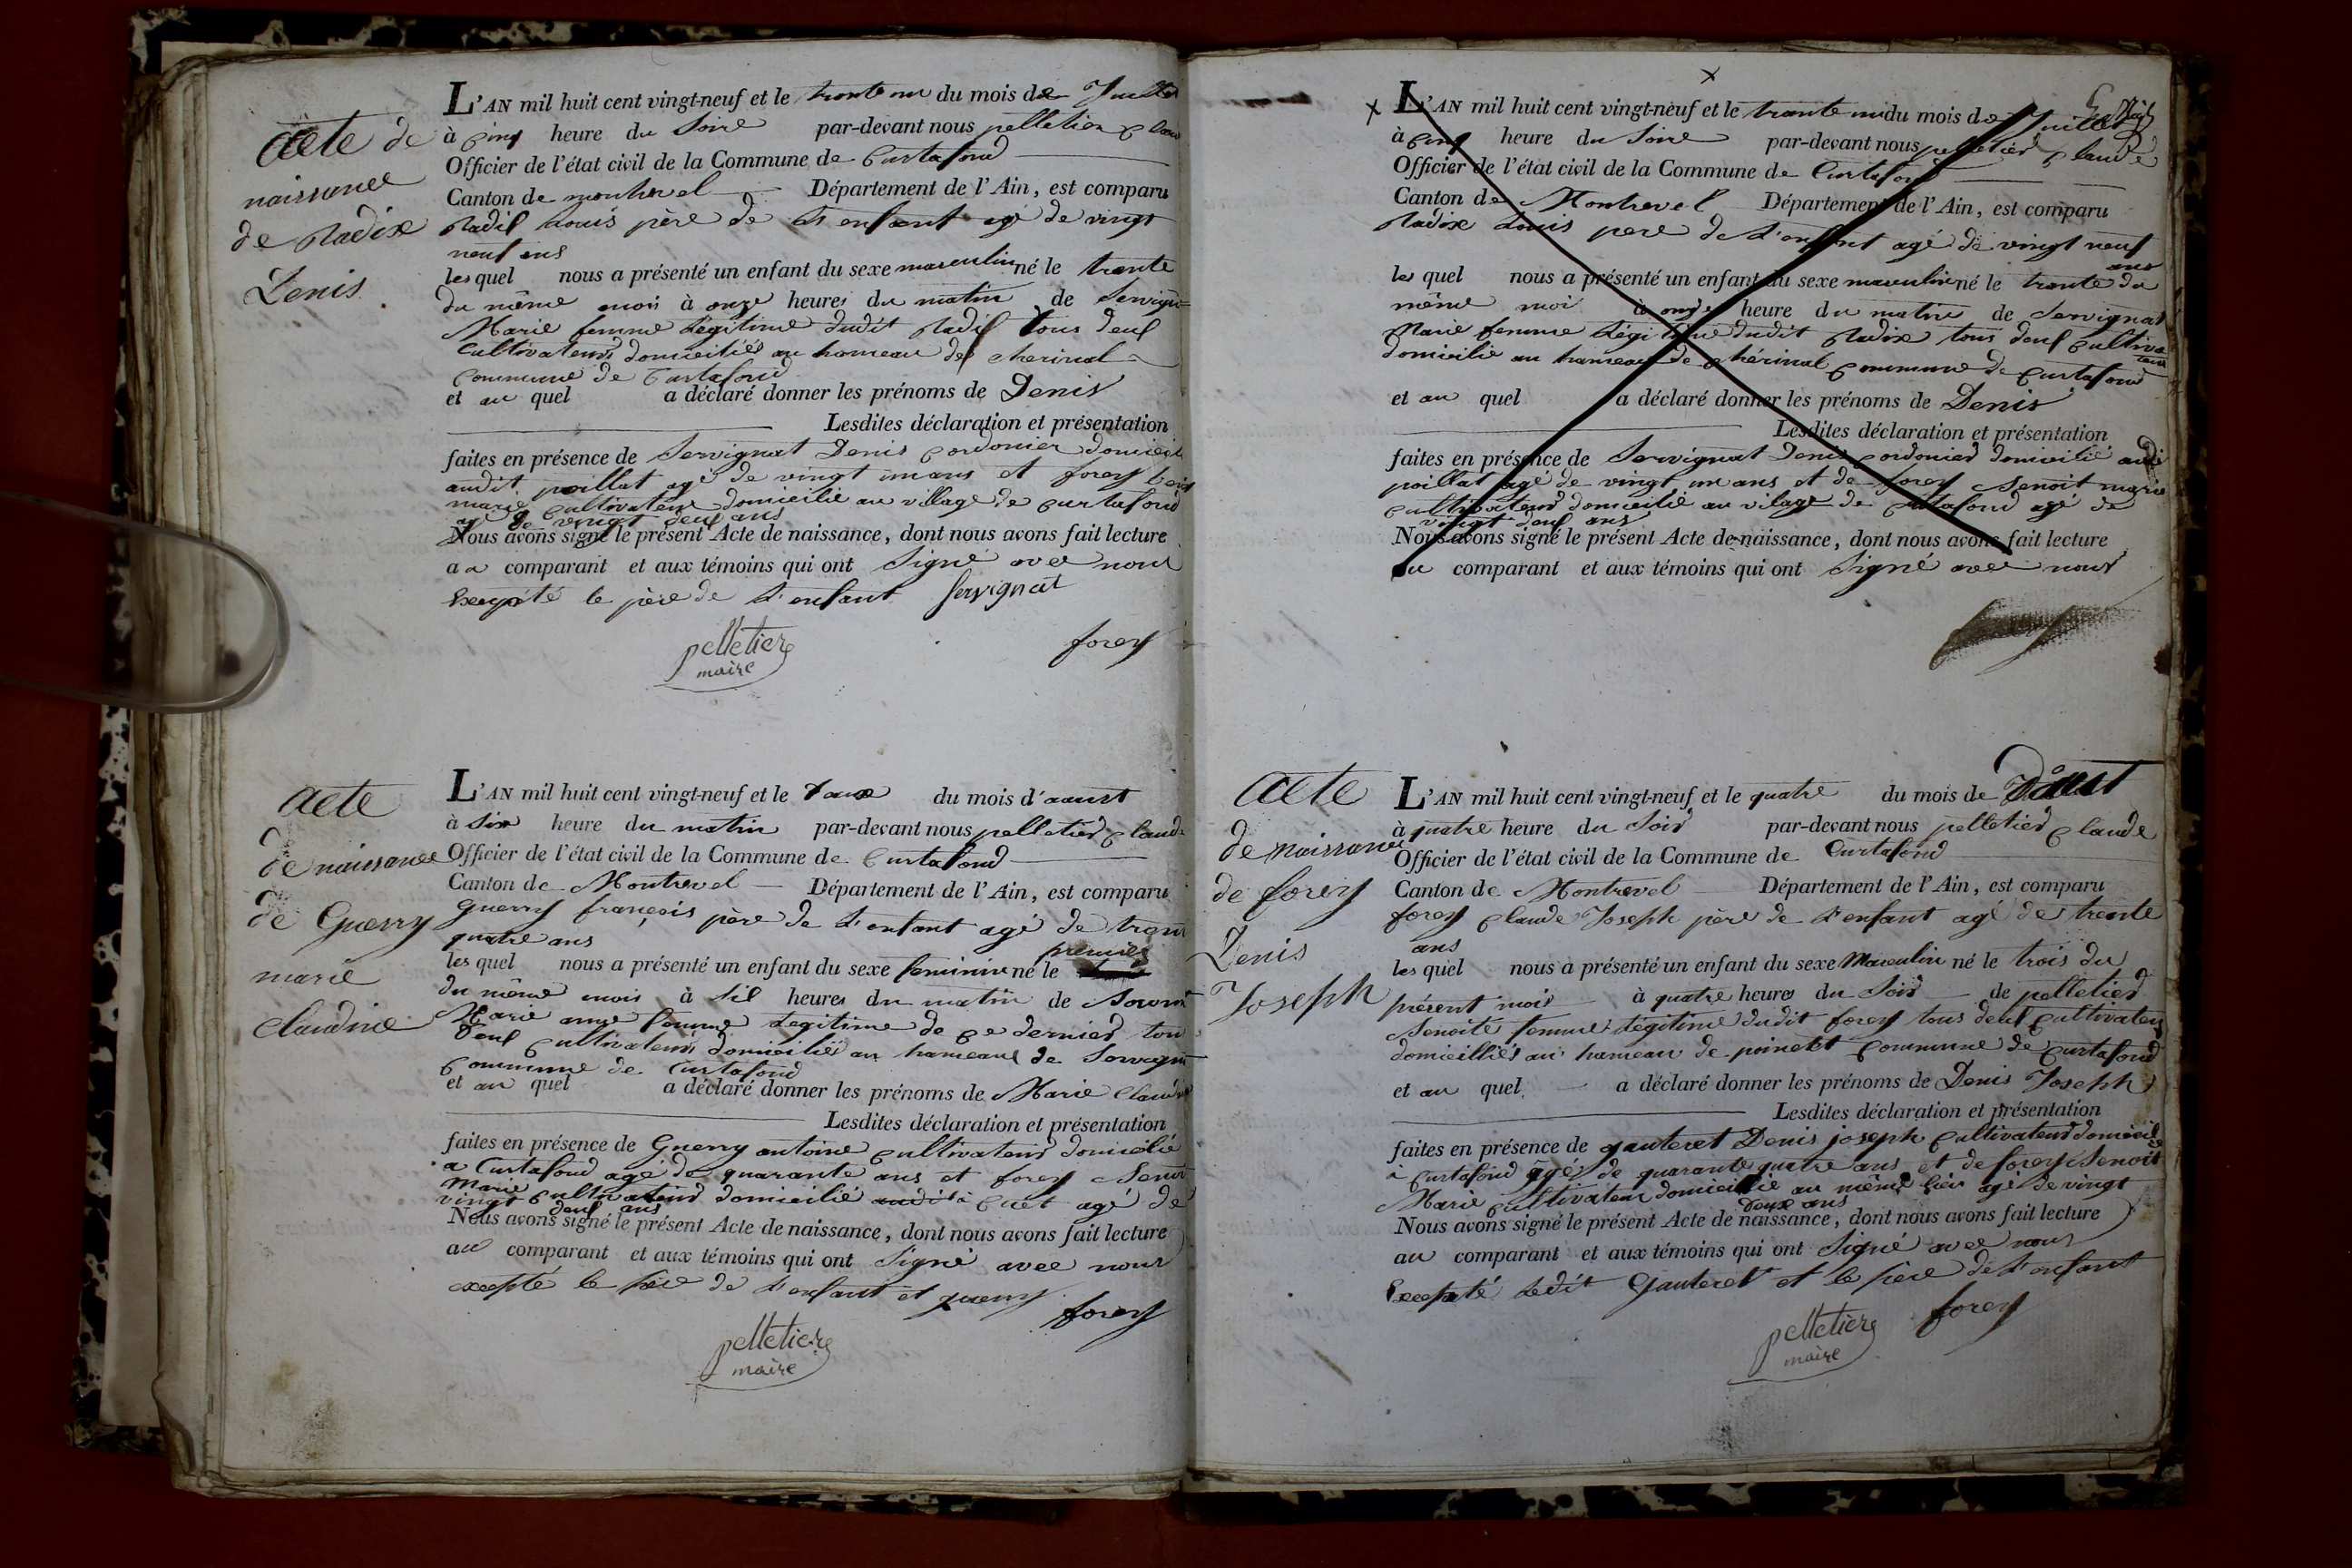 acte de
naissance
de Radix
Denis
L'AN mil huit cent vingt-neuf et le trente un du mois de Juillet
à cinq heure du Soire par-devant nous pelletier Claude
Officier de l'état civil de la Commune de Curtafond
Canton de montrevel Département de l'Ain, est comparu
Radix Louis père de l'enfant agé de vingt
neuf ans
lesquel nous a présenté un enfant du sexe masculin né le trente
du même mois à onze heures du matin de Servignat
Marie femme Légitime dudit Radix tous deux
Cultivateurs domiciliés au hameau de cherinal
commune de Curtafond
et au quel a déclaré donner les prénoms de Denis
Lesdites déclaration et présentation
faites en présence de Servignat Denis cordonier domicilié
audit poillat agé de vingt un ans et forey Benoit
marie cultivateur domicilié au village de curtafond
agé de vingt deux ans
Nous avons signé le présent Acte de naissance, dont nous avons fait lecture
au comparant et aux témoins qui ont Signé avec nous
Excepté le père de l'enfant Servignat
pelletier forey
maire
acte
de naissance
de Guerry
marie
claudine
L'AN mil huit cent vingt-neuf et le deux du mois d'aoust
à Six heure du matin par-devant nous pelletier Claude
Officier de l'état civil de la Commune de Curtafond
Canton de Montrevel Département de l'Ain, est comparu
Guerry françois père de l'enfant agé de trente
quatre ans
premier
lesquel nous a présenté un enfant du sexe feminin né le
du même mois à six heures du matin de
Marie anne femme Légitime de ce dernier tous
deux cultivateurs domiciliés au hameaux de Servignat
commune de Curtafond
et au quel a déclaré donner les prénoms de Marie Claudine
Lesdites déclaration et présentation
faites en présence de Guerry antoine cultivateur domicilié
a Curtafond agé de quarante ans et forey Benoit
Marie cultivateur domicilié audit agé de
vingt deux ans
Nous avons signé le présent Acte de naissance, dont nous avons fait lecture
au comparant et aux témoins qui ont Signé avec nous
excepté le père de l'enfant et guerry
forey
pelletier
maire
L'AN mil huit cent vingt-neuf et le trante un du mois de Juillet
à cinq heure du Soire par-devant nous pelletier Claude
Officier de l'état civil de la Commune de Curtafond
Canton de Montrevel Département de l'Ain, est comparu
Radix Louis pere de l'enfant agé de vingt neuf
ans
les quel nous a présenté un enfant du sexe masculin né le trante du
même moi à onze heure du matin de Servignat
Marie femme Légitime dudit Radix tous deux cultivateurs
domicilié au hameau de chérinal commune de Curtafond
et au quel a déclaré donner les prénoms de Denis
Lesdites déclaration et présentation
faites en présence de Servignat Denis cordonier domicilié audit
poillat agé de vingt un ans et de forey Benoit marie
cultivateur domicilié au vilage de Curtafond agé de
vingt deux ans
Nous avons signé le présent Acte de naissance, dont nous avons fait lecture
au comparant et aux témoins qui ont Signé avec nous
acte
de naissance
de forey
Denis
Joseph
L'AN mil huit cent vingt-neuf et le quatre du mois de D'aoust
à quatre heure du Soir par-devant nous pelletier Claude
Officier de l'état civil de la Commune de Curtafond
Canton de Montrevel Département de l'Ain, est comparu
forey Claude Joseph père de l'enfant agé de trente
ans
les quel nous a présenté un enfant du sexe Masculin né le trois du
présent mois à quatre heures du Soir de pelletier
Benoite femme Légitime dudit forey tous deux cultivateurs
domicilliés au hameau de poinetet commune de Curtafond
et au quel a déclaré donner les prénoms de Denis Joseph
Lesdites déclaration et présentation
faites en présence de gauteret Denis joseph cultivateur domicilié
à Curtafond agé de quarante quatre ans et de forey Benoit
Marie cultivateur domicilié au même lieu agé de vingt
deux ans
Nous avons signé le présent Acte de naissance, dont nous avons fait lecture
au comparant et aux témoins qui ont Signé avec nous
Excepté ledit Gauteret et le père de l'enfant
pelletier forey
maire